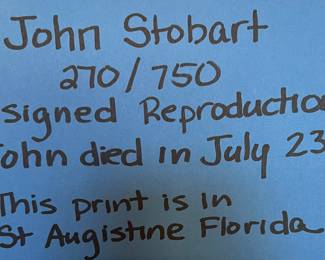 John Stobart
270/750
signed Reproductio
John died in July 23
This print is in
St Augistine Florida